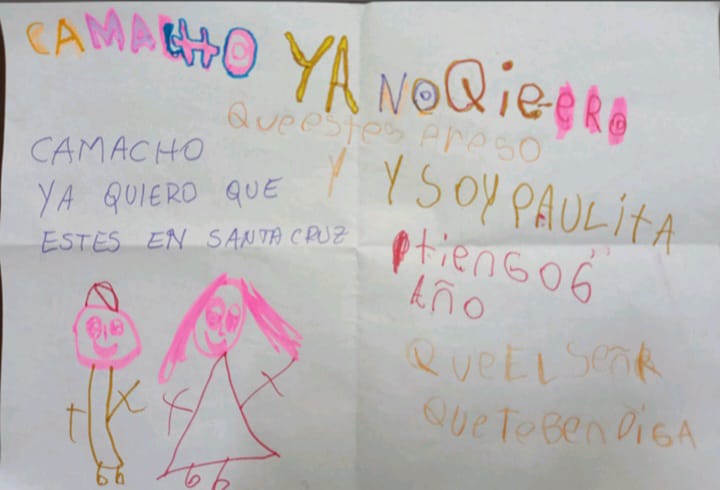 CAMACHO YA NO QieERO
Que estes PreSO
CAMACHO
YA QUIERO QUE
ESTES EN SANTA CRUZ
Y Y SOY PAULitA
tienGO 6
AÑO
QUE EL SeñR
QUE TE BenDiGA